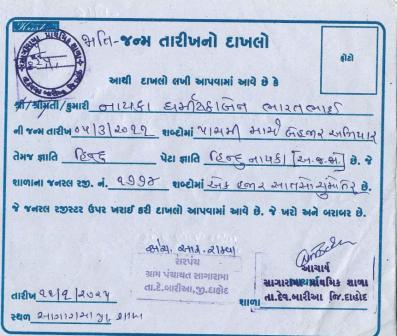 જાતિ-જન્મ તારીખનો દાખલો
ફોટો
આથી દાખલો લખી આપવામાં આવે છે કે
શ્રી/શ્રીમતી/કુમારી નાયકા ભારતભાઈ
ની જન્મ તારીખ ૦૫/૩/૨૦૧૧ શબ્દોમાં પાંચમી માર્ચ બે હજાર અગિયાર
તેમજ જ્ઞાતિ હિન્દુ પેટા જ્ઞાતિ હિન્દુ નાયકા છે. જે
શાળાના જનરલ રજી. નં. ૧૭૭૪ શબ્દોમાં એક હજાર સાતસો ચુંમોતેર છે.
જે જનરલ રજીસ્ટર ઉપર ખરાઈ કરી દાખલો આપવામાં આવે છે. જે ખરો અને બરાબર છે.
સરપંચ
ગ્રામ પંચાયત સાગારામા
તા.દે.બારીઆ,જી.દાહોદ
આચાર્ય
સાગારામા પ્રાથમિક શાળા
તા.દેવ.બારીઆ જિ.દાહોદ
તારીખ
શાળા
સ્થળ